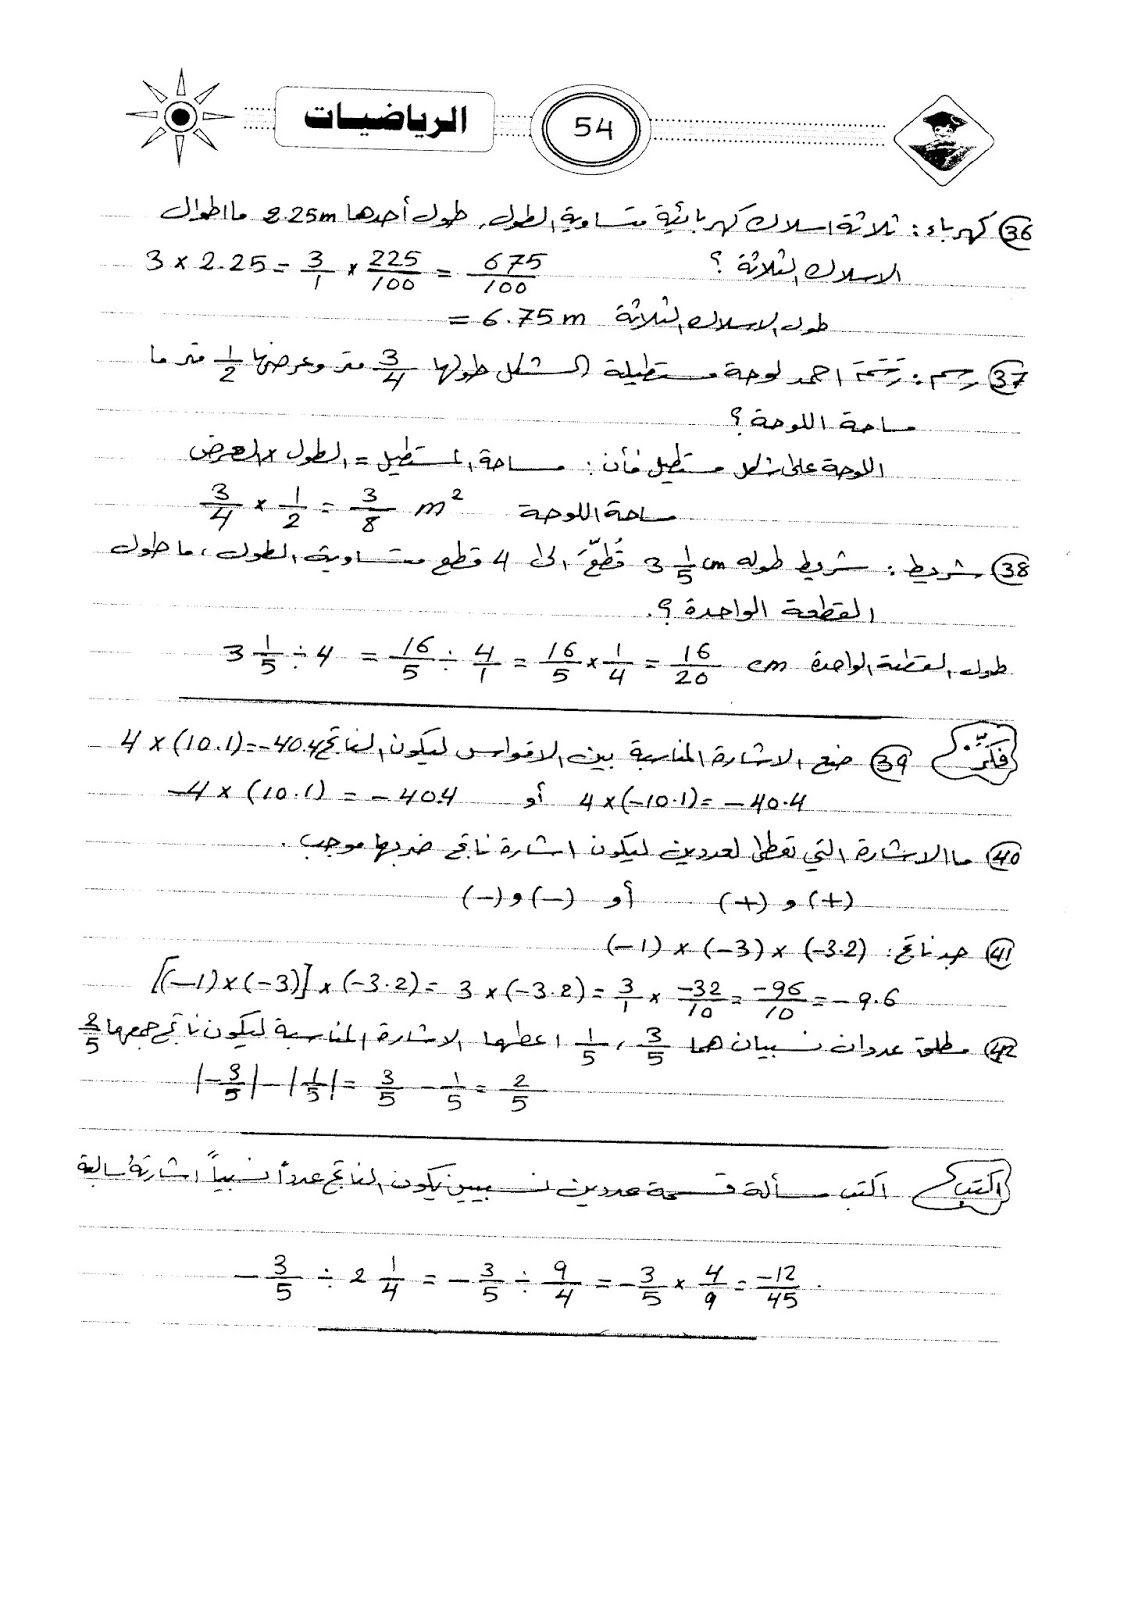 الرياضيات
54
36 كهرباء: ثلاثة اسلاك كهربائية متساوية الطول، طول أحدها 2.25m ما اطوال
الاسلاك الثلاثة ؟ 3 × 2.25 = 3/1 × 225/100 = 675/100
طول الاسلاك الثلاثة = 6.75 m
37 رسم: رسم احمد لوحة مستطيلة الشكل طولها 3/4 متر وعرضها 1/2 متر ما
مساحة اللوحة ؟
اللوحة على شكل مستطيل فأن: مساحة المستطيل = الطول × العرض
مساحة اللوحة 3/4 × 1/2 = 3/8 m²
38 شريط: شريط طوله 3 1/5 cm قُطّعَ الى 4 قطع متساوية الطول، ما طول
القطعة الواحدة ؟.
طول القطعة الواحدة 3 1/5 ÷ 4 = 16/5 ÷ 4/1 = 16/5 × 1/4 = 16/20 cm
فكّر: 39 ضع الاشارة المناسبة بين الاقواس ليكون الناتج 4 × (10.1) = -40.4
4 × (-10.1) = -40.4 أو -4 × (10.1) = -40.4
40 ما الاشارة التي تعطى لعددين ليكون اشارة ناتج ضربها موجب.
(+) و (+) أو (-) و (-)
41 جد ناتج: (-1) × (-3) × (-3.2)
[(-1) × (-3)] × (-3.2) = 3 × (-3.2) = 3/1 × -32/10 = -96/10 = -9.6
42 مطلق عددان نسبيان هما 3/5 ، 1/5 اعطها الاشارة المناسبة ليكون ناتج جمعها 2/5
|-3/5| - |1/5| = 3/5 - 1/5 = 2/5
اكتب اكتب مسألة قسمة عددين نسبيين يكون الناتج عدداً نسبياً اشارته سالبة
-3/5 ÷ 2 1/4 = -3/5 ÷ 9/4 = -3/5 × 4/9 = -12/45 .